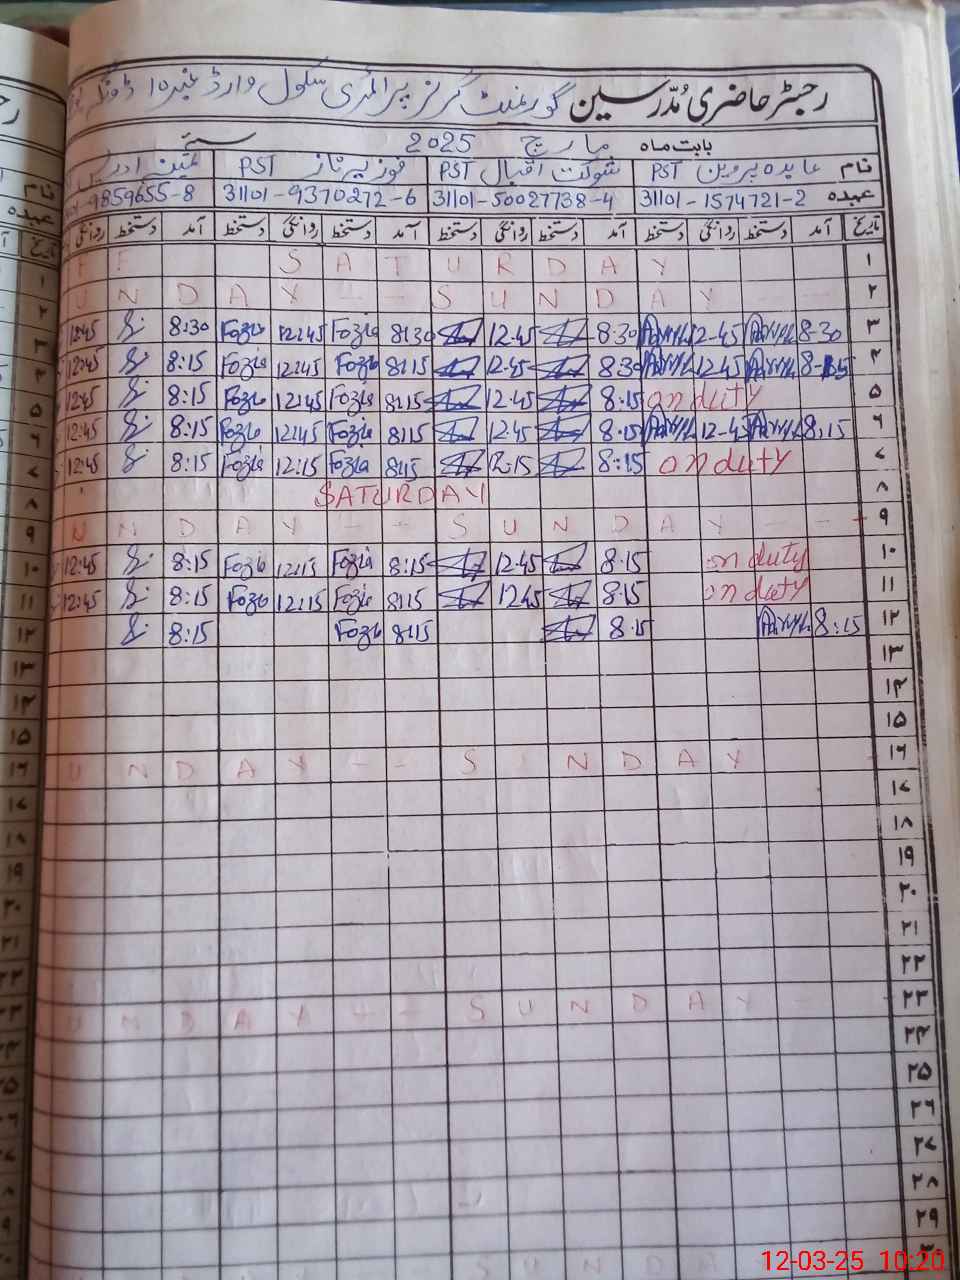 رجسٹر حاضری مُدّرسین گورنمنٹ گرلز پرائمری سکول وارڈ نمبر ۱۵
بابت ماہ مارچ 2025
نام عابدہ پروین PST شوکت اقبال PST فوزیہ ناز PST
عہدہ 31101-1574721-2 31101-50027738-4 31101-9370272-6 9859655-8
تاریخ آمد دستخط روانگی دستخط آمد دستخط روانگی دستخط آمد دستخط روانگی دستخط آمد دستخط روانگی
۱ S A T U R D A Y
۲ U N D A Y - - S U N D A Y - - -
۳ 8-30 12-45 8.30 12.45 8:30 Fozia 12:45 Fozia 8:30 12:45
۴ 8-15 12.45 8.30 12.45 8:15 Fozia 12:45 Fozia 8:15 12:45
۵ on duty 8:15 12.45 8:15 Fozia 12:45 Fozia 8:15 12:45
۶ 8:15 12-45 8.15 12.45 8:15 Fozia 12:45 Fozia 8:15 12:45
۷ on duty 8:15 12:15 8:15 Fozia 12:15 Fozia 8:15 12:45
۸ SATURDAY
۹ U N D A Y - - S U N D A Y - - -
۱۰ on duty 8.15 12.45 8:15 Fozia 12:15 Fozia 8:15 12:45
۱۱ on duty 8:15 12.45 8:15 Fozia 12:15 Fozia 8:15 12:45
۱۲ 8:15 8.15 8:15 Fozia 8:15
۱۳
۱۴
۱۵
۱۶ U N D A Y - - S U N D A Y
۱۷
۱۸
۱۹
۲۰
۲۱
۲۲
۲۳ U N D A Y - - S U N D A Y -
۲۴
۲۵
۲۶
۲۷
۲۸
۲۹
۳۰ S U N D A Y
12-03-25 10:20